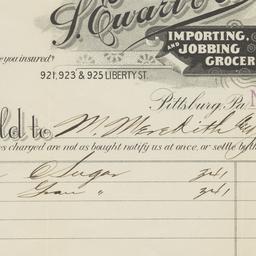 S. Ewart &
IMPORTING,
AND JOBBING
GROCER
e you insured?
921, 923 & 925 LIBERTY ST.
Pittsburg, Pa. N
ld to W. Meredith
es charged are not as bought notify us at once, or settle by th
Sugar 341
Gran " 341